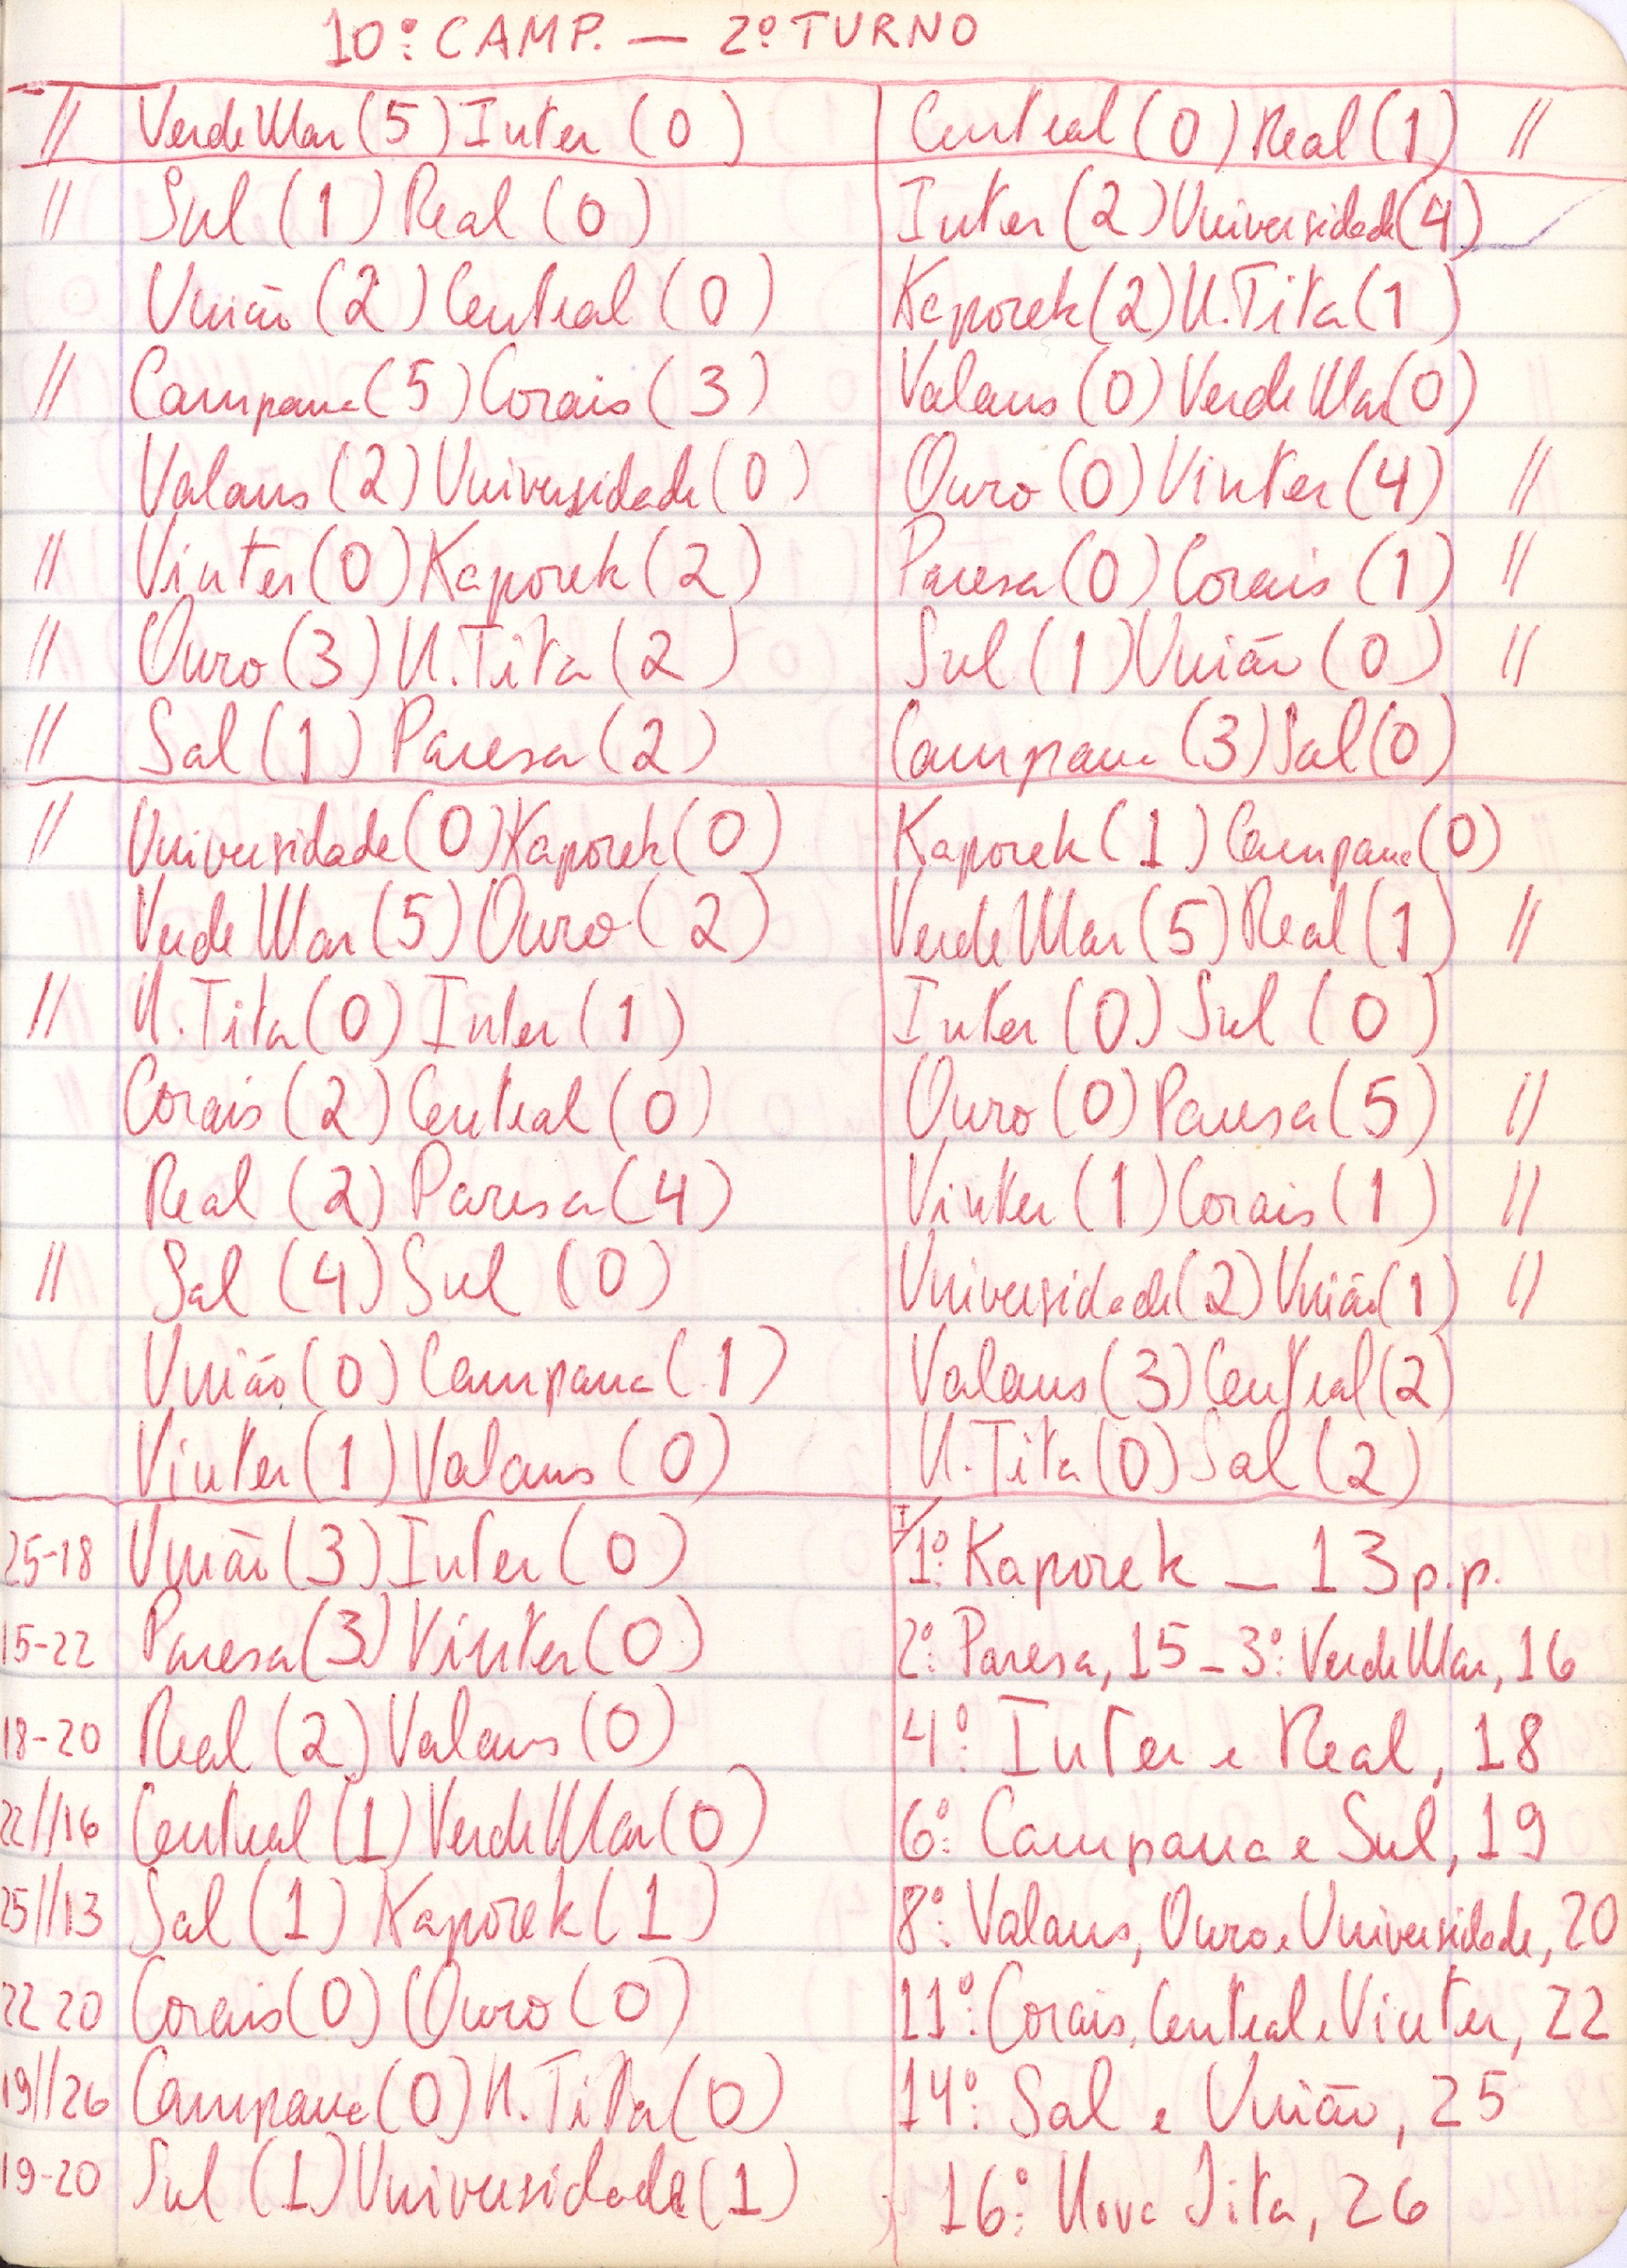 10º CAMP. — 2º TURNO
// VerdeMar (5) Inter (0)
Central (0) Real (1) //
// Sul (1) Real (0)
Inter (2) Universidade (4)
União (2) Central (0)
Kaporek (2) N. Tita (1)
// Campana (5) Corais (3)
Valans (0) VerdeMar (0)
Valans (2) Universidade (0)
Ouro (0) Vinter (4) //
// Vinter (0) Kaporek (2)
Paresa (0) Corais (1) //
// Ouro (3) N. Tita (2)
Sul (1) União (0) //
// Sal (1) Paresa (2)
Campana (3) Sal (0)
// Universidade (0) Kaporek (0)
Kaporek (1) Campana (0)
VerdeMar (5) Ouro (2)
VerdeMar (5) Real (1) //
// N. Tita (0) Inter (1)
Inter (0) Sul (0)
Corais (2) Central (0)
Ouro (0) Paresa (5) //
Real (2) Paresa (4)
Vinter (1) Corais (1) //
// Sal (4) Sul (0)
Universidade (2) União (1) //
União (0) Campana (1)
Valans (3) Central (2)
Vinter (1) Valans (0)
N. Tita (0) Sal (2)
25-18 União (3) Inter (0)
15-22 Paresa (3) Vinter (0)
18-20 Real (2) Valans (0)
22//16 Central (1) VerdeMar (0)
25//13 Sal (1) Kaporek (1)
22 20 Corais (0) Ouro (0)
19//26 Campana (0) N. Tita (0)
19-20 Sul (1) Universidade (1)
I/1º Kaporek — 13 p.p.
2º Paresa, 15 — 3º VerdeMar, 16
4º Inter e Real, 18
6º Campana e Sul, 19
8º Valans, Ouro e Universidade, 20
11º Corais, Central e Vinter, 22
14º Sal e União, 25
16º Nova Tita, 26